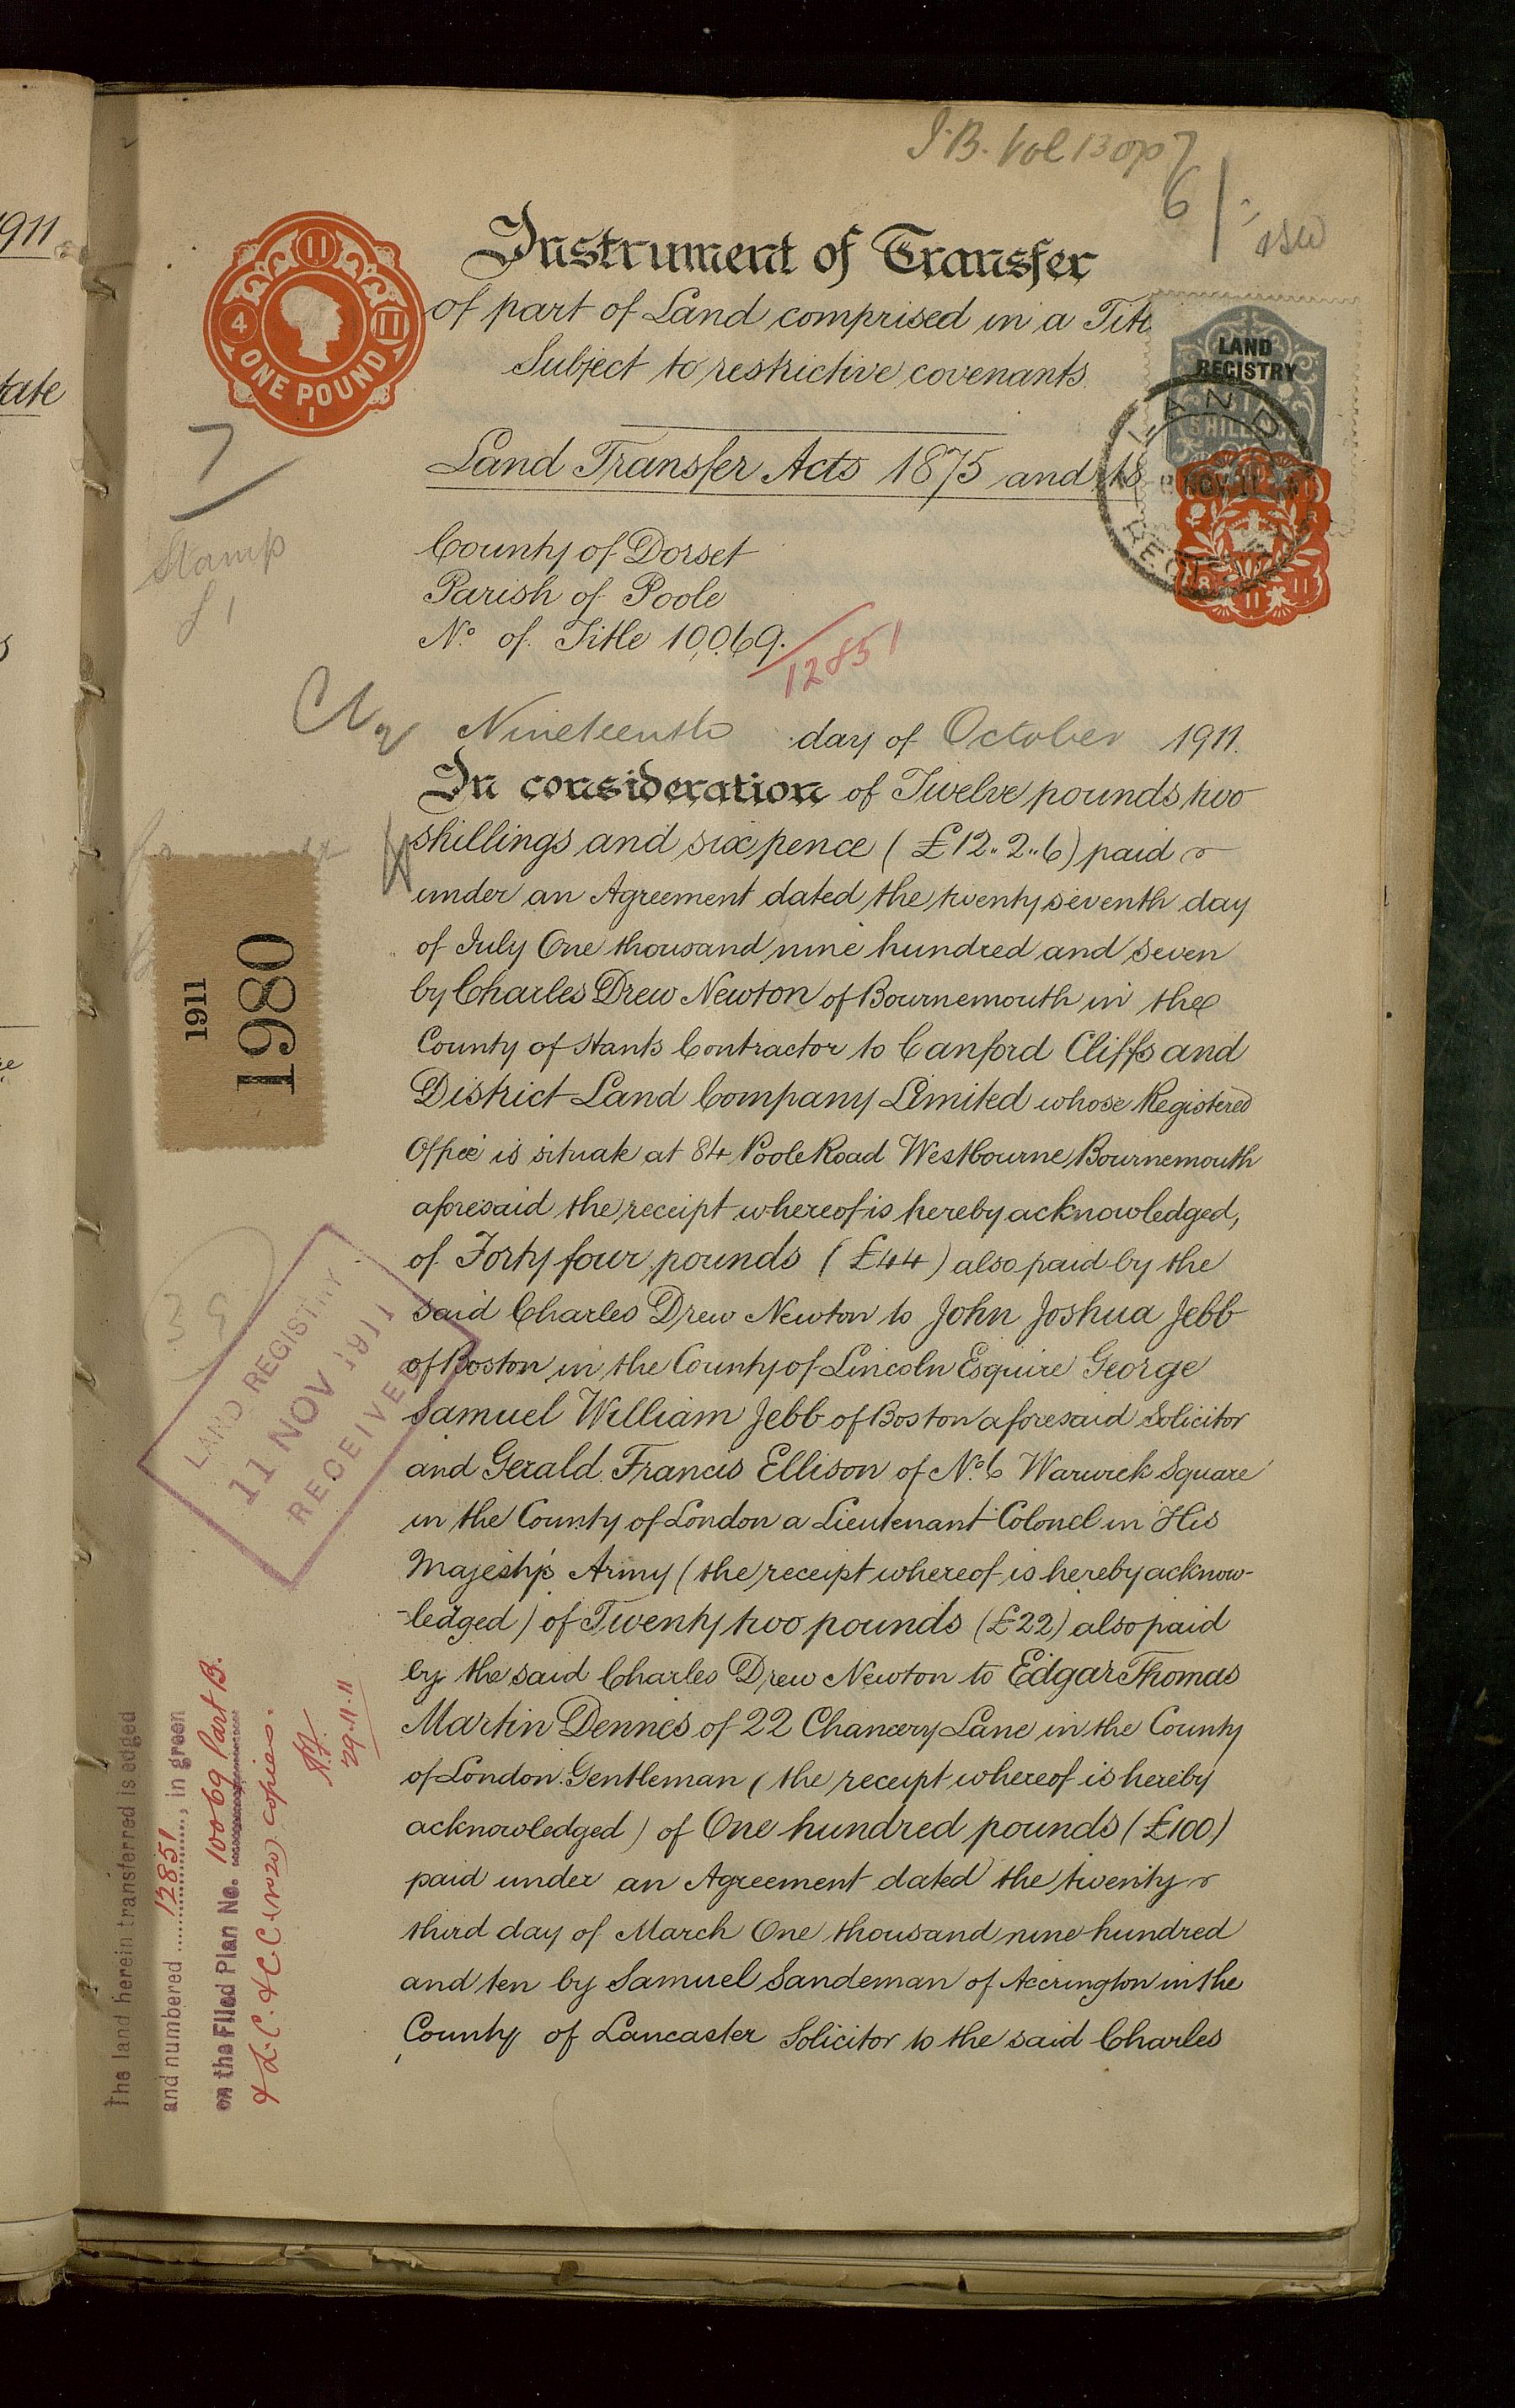 911
tate
J.B. Vol 130 p 7
6/-
Instrument of Transfer
of part of Land comprised in a Titl
Subject to restrictive covenants
11
4 11
ONE POUND
1
LAND
REGISTRY
SHILLING
LAND
8 NOV 11
REGI
8 11 11
7
Stamp
£1
Land Transfer Acts 1875 and 18
County of Dorset
Parish of Poole
No of Title 10069.
12851
Nineteenth day of October 1911.
In consideration of Twelve pounds two
shillings and six pence (£12..2..6) paid
under an Agreement dated the twenty seventh day
of July One thousand nine hundred and seven
by Charles Drew Newton of Bournemouth in the
County of Hants Contractor to Canford Cliffs and
District Land Company Limited whose Registered
Office is situate at 84 Poole Road Westbourne Bournemouth
aforesaid the receipt whereof is hereby acknowledged,
of Forty four pounds (£44) also paid by the
said Charles Drew Newton to John Joshua Jebb
of Boston in the County of Lincoln Esquire George
Samuel William Jebb of Boston aforesaid Solicitor
and Gerald Francis Ellison of No. 6 Warwick Square
in the County of London a Lieutenant Colonel in His
Majesty's Army (the receipt whereof is hereby acknow-
-ledged) of Twenty two pounds (£22) also paid
by the said Charles Drew Newton to Edgar Thomas
Martin Dennes of 22 Chancery Lane in the County
of London Gentleman (the receipt whereof is hereby
acknowledged) of One hundred pounds (£100)
paid under an Agreement dated the twenty
third day of March One thousand nine hundred
and ten by Samuel Sandeman of Accrington in the
County of Lancaster Solicitor to the said Charles
1911
1980
LAND REGISTRY
11 NOV 1911
RECEIVED
The land herein transferred is edged
and numbered 12851, in green
on the Filed Plan No. 10069 Part B.
& L.C. & C.C. (1020) copies.
29.11.11